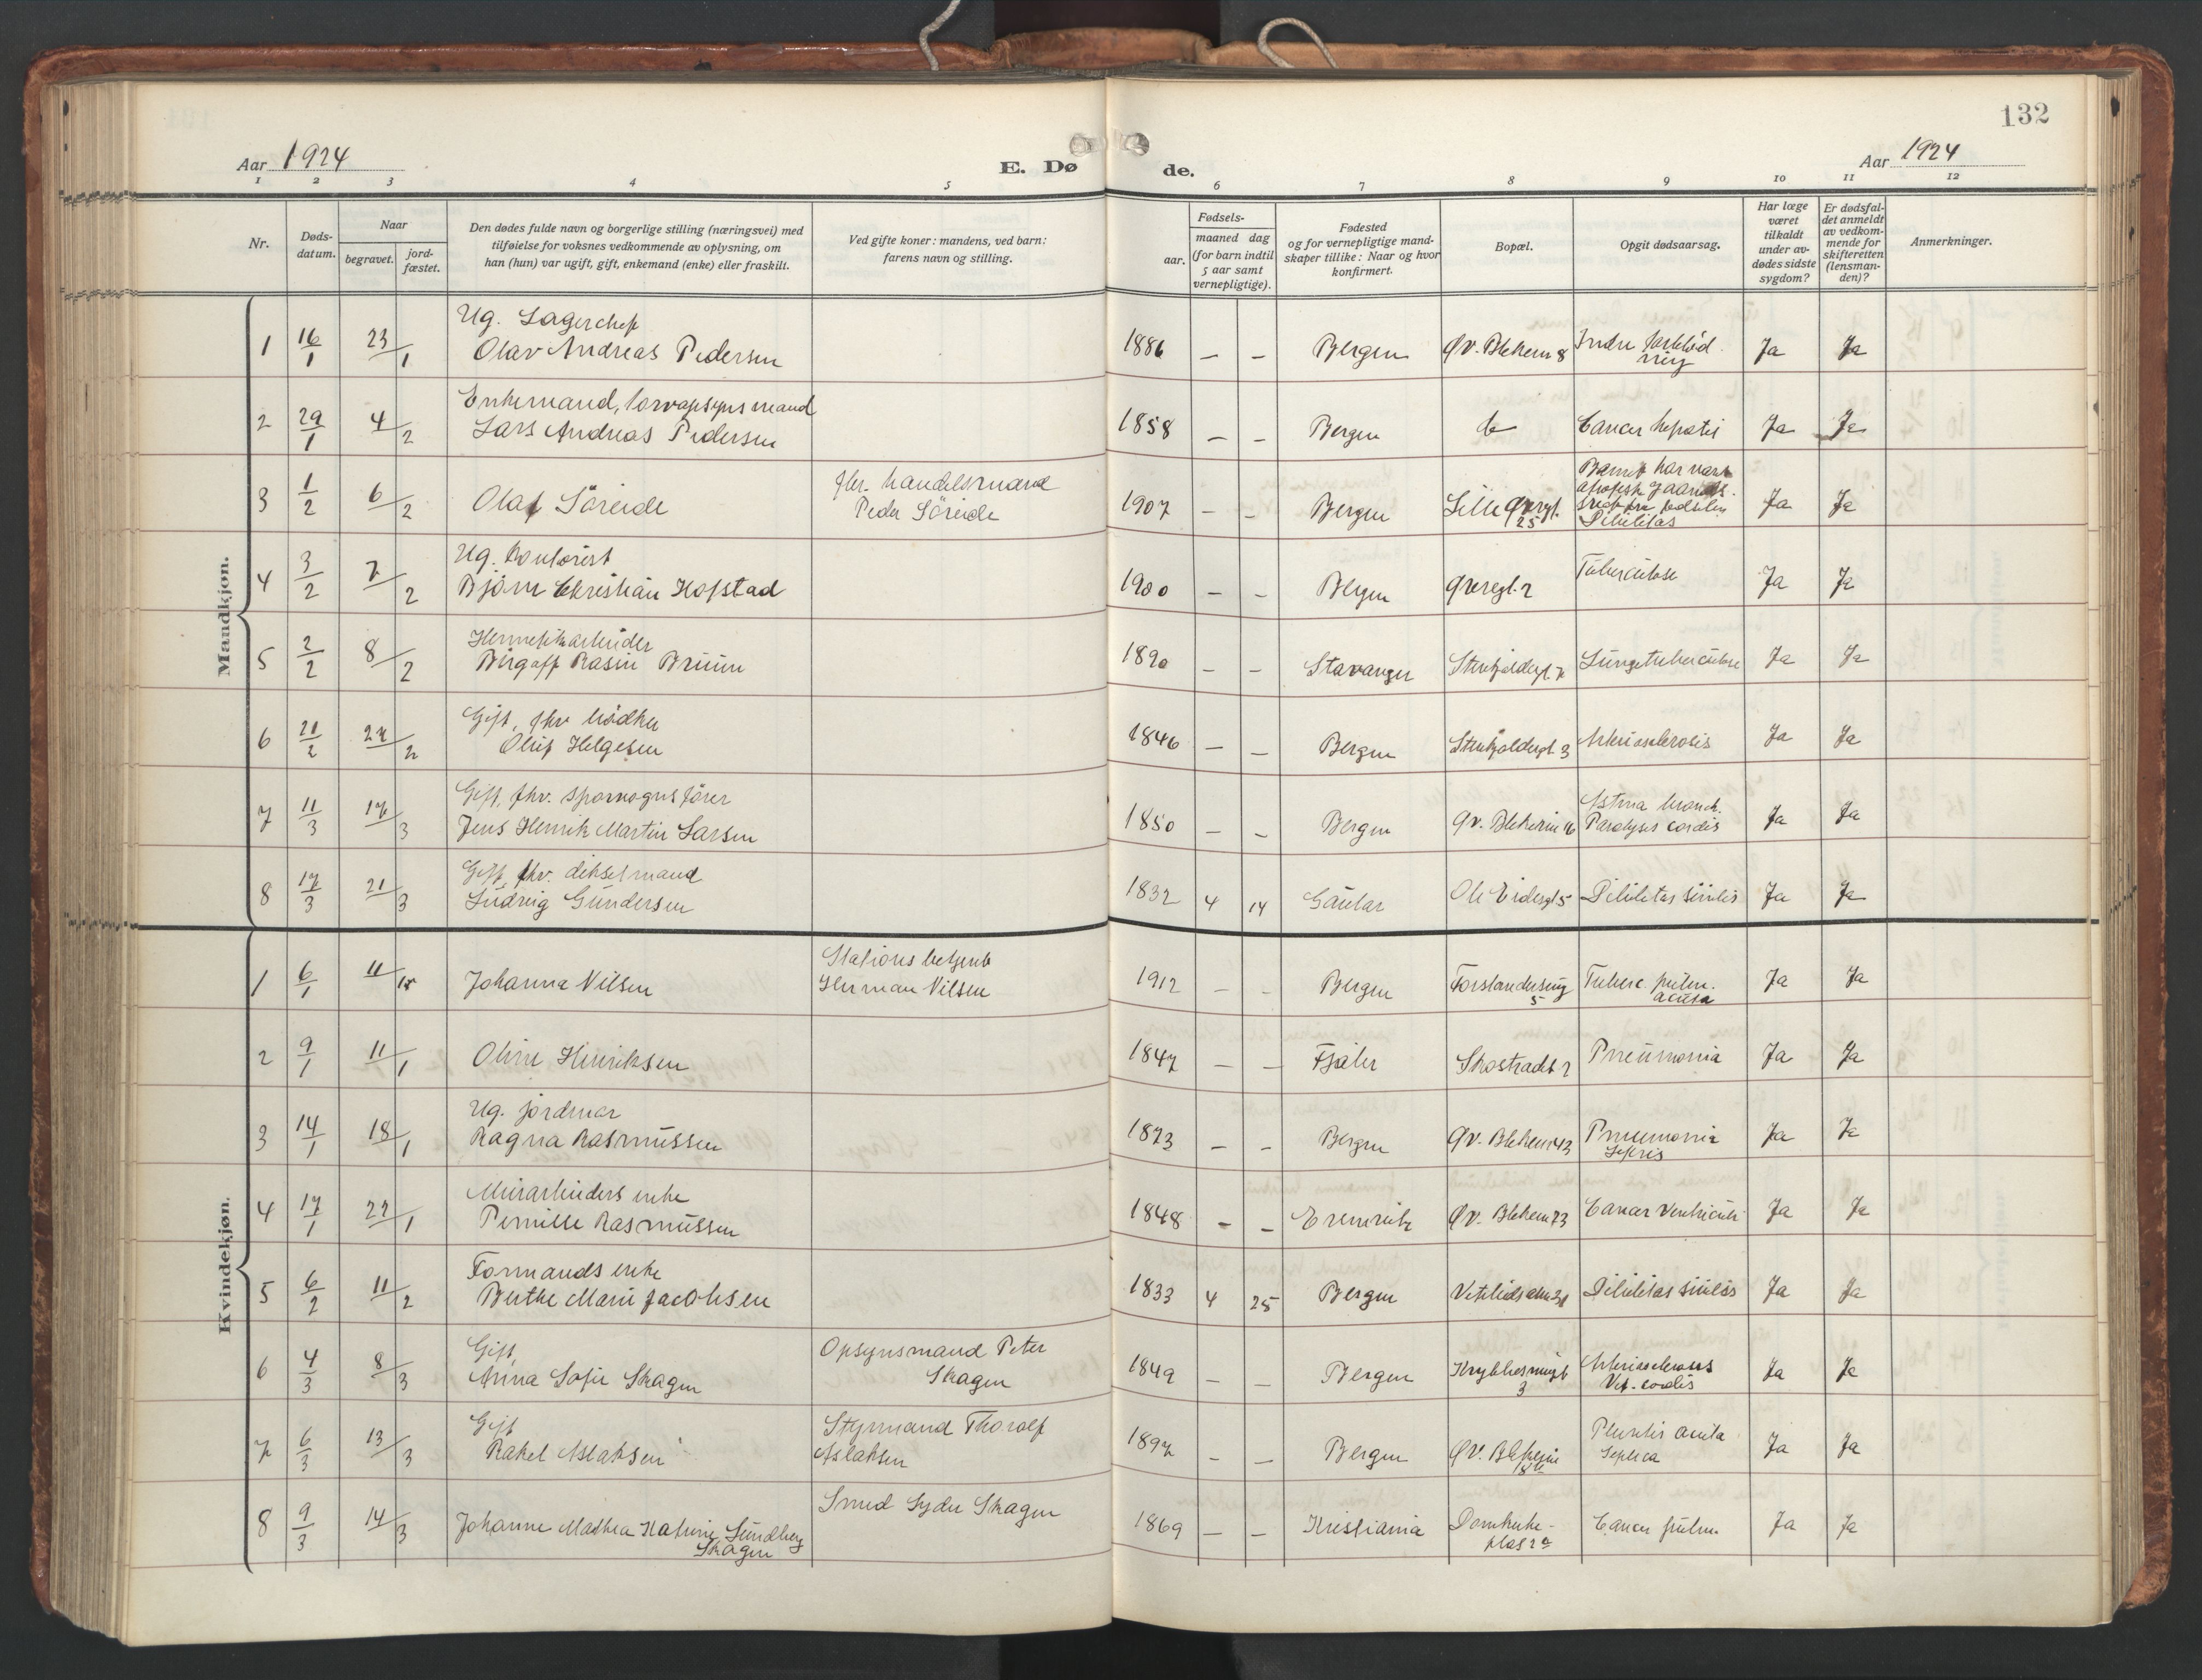 132
Aar 1924
E. Dø
de.
Aar 1924
1 2 3 4 5 6 7 8 9 10 11 12
Nr.
Døds-
datum.
Naar
begravet.
jord-
fæstet.
Den dødes fulde navn og borgerlige stilling (næringsvei) med
tilføielse for voksnes vedkommende av oplysning, om
han (hun) var ugift, gift, enkemand (enke) eller fraskilt.
Ved gifte koner: mandens, ved barn:
farens navn og stilling.
Fødsels-
aar.
maaned dag
(for barn indtil
5 aar samt
vernepligtige).
Fødested
og for vernepligtige mand-
skaper tillike: Naar og hvor
konfirmert.
Bopæl.
Opgit dødsaarsag.
Har læge
været
tilkaldt
under av-
dødes sidste
sygdom?
Er dødsfal-
det anmeldt
av vedkom-
mende for
skifteretten
(lensman-
den)?
Anmerkninger.
Mandkjøn.
1 16/1 23/1 Ug. Lagerchef
Olav Andreas Pedersen 1886 – – Bergen Øv. Blekevei 8 Indre forblød-
ning Ja Ja
2 29/1 4/2 Enkemand,
Lars Andreas Pedersen 1858 – – Bergen do Cancer hepatis Ja Ja
3 1/2 6/2 Olaf Söreide fhv. handelsmand
Peder Söreide 1907 – – Bergen Lille Øvregt.
25 Barnet har vært
fra fødselen
Debilitas Ja Ja
4 3/2 7/2 Ug. Kontorist
Bjørn Christian Hofstad 1900 – – Bergen Øvregt. 2 Tuberculose Ja Ja
5 2/2 8/2 Hermetikarbeider
Rasin Bruun 1890 – – Stavanger Lungetuberculose Ja Ja
6 21/2 27/2 Gift, fhv bödker
Oluf Helgesen 1846 – – Bergen 3 Arteriosclerosis Ja Ja
7 11/3 17/3 Gift, fhv. sporvognsförer
Jens Henrik Martin Larsen 1850 – – Bergen Øv. Blekevei 16 Astma bronch.
Paralysis cordis Ja Ja
8 17/3 21/3 Gift, fhv. dikselmand
Ludvig Gundersen 1832 4 14 Gaular 5 Debilitas senilis Ja Ja
Kvindekjøn.
1 6/1 11/1 Johanna Nilsen Stationsbetjent
Herman Nilsen 1912 – – Bergen Forstandersmug
5 Tuberc. pulm.
acuta Ja Ja
2 9/1 11/1 Oline Hinriksen 1847 – – Fjaler Skostrædet 2 Pneumonia Ja Ja
3 14/1 18/1 Ug. jordmor
Ragna Rasmussen 1873 – – Bergen Øv. Blekevei 43 Pneumonia
Sepsis Ja Ja
4 17/1 22/1 Murarbeiders enke
Pernille Rasmussen 1848 – – Erenvik Øv. Blekevei 73 Cancer Ventriculi Ja Ja
5 6/2 11/2 Formands enke
Berthe Marie Jacobsen 1833 4 25 Bergen Debilitas senilis Ja Ja
6 4/3 8/3 Gift,
Anna Sofie Skagen Opsynsmand Peter
Skagen 1849 – – Bergen Krybbesmuget
3 Arteriosclerosis
Vit. cordis Ja Ja
7 6/3 13/3 Gift
Rakel Aslaksen Styrmand Thoralf
Aslaksen 1897 – – Bergen Øv. Blekevei
18 Pleuritis acuta
septica Ja Ja
8 9/3 14/3 Johanne Mathea Katrine Sundberg
Skagen Smed Syder Skagen 1869 – – Kristiania Domkirke-
plas 2a Cancer pulm. Ja Ja